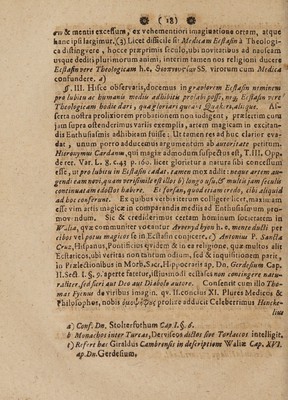 (18)
en & mentis excessum, ex vehementiori imaginatione ortam, atque
hanc ipsi largimur.(3) Licet difficile sit Medicam Ecstasin à Theologi-
ca distingvere, hocce præprimis seculo, ubi novitatibus ad nauseam
usque dediti plurimorum animi, interim tamen nos religioni ducere
Ecstasin vere Theologicam h.e. SS. virorum cum Medica
confundere. a)
§. III. Hisce observatis, docemus in genere Ecstasin neminem
pro lubitu ac humanis mediis adhibitis posse, nec Ecstasin vere
Theologicam hodie dari, quâ gloriari Quakeri, aliique. As-
serta nostra prolixiorem probationem non indigent, præsertim cum
jam supra ostenderimus variis exemplis, artem magicam in excitan-
da Enthusiasmis adhibitam fuisse. Ut tamen res ad huc clarior eva-
dat, unum porro adducemus argumentum ab autoritate petitum.
Hieronymus Cardanus, qui magiæ admodum suspectus est, T. III. Opp.
de rer. Var. L. 8. c. 43 p. 160. licet glorietur a natura sibi concessum
esse, ut pro lubitu in Ecstasin cadat, tamen mox addit: neque artem au-
gendi eam novi, quam verisimile est esse & longo usu, & multis jam seculis
continuatam edoctos habere. Et forsan, quod etiam credo, cibi aliquid
ad hoc conferunt. Ex quibus verbis iterum colligere licet, maximam
esse vim artis magicæ in comparandis mediis ad Enthusiasmum pro-
movendum. Sic & crediderimus certam hominum societatem in
Walia, quæ communiter vocantur h. e. mente ducti per
cibos vel potus magicos se in Ecstasin conjicere. c) Antonius P. Sancta
Crux, Hispanus, Pontificius qvidem & in ea religione, quæ multos alit
Ecstaticos, ubi veritas non tantum odium, sed & inquisitionem parit,
in Prælectionibus in Morb. Sac. Hippocratis ap. Dn. Gerdesium Cap.
II. Sect. I. §. 9. aperte fatetur, illiusmodi ecstases non contingere natu-
raliter, sed fieri aut Deo aut Diabolo autore. Consentit cum illo Tho-
mas Fyenus de viribus imagin. qv. II. conclus XI. Plures Medicos &
Philosophos, nobis prolixe adducit Celeberrimus Hencke-
lius
a) Conf. Dn. Stolterfothum Cap. I. §. 6.
b) Monachos inter Turcas, Derviseos dictos sive Torlaceos intelligit.
c) Refert hæc Giraldus Cambrensis in descriptione Waliæ Cap. XVI.
ap. Dn. Gerdesium.